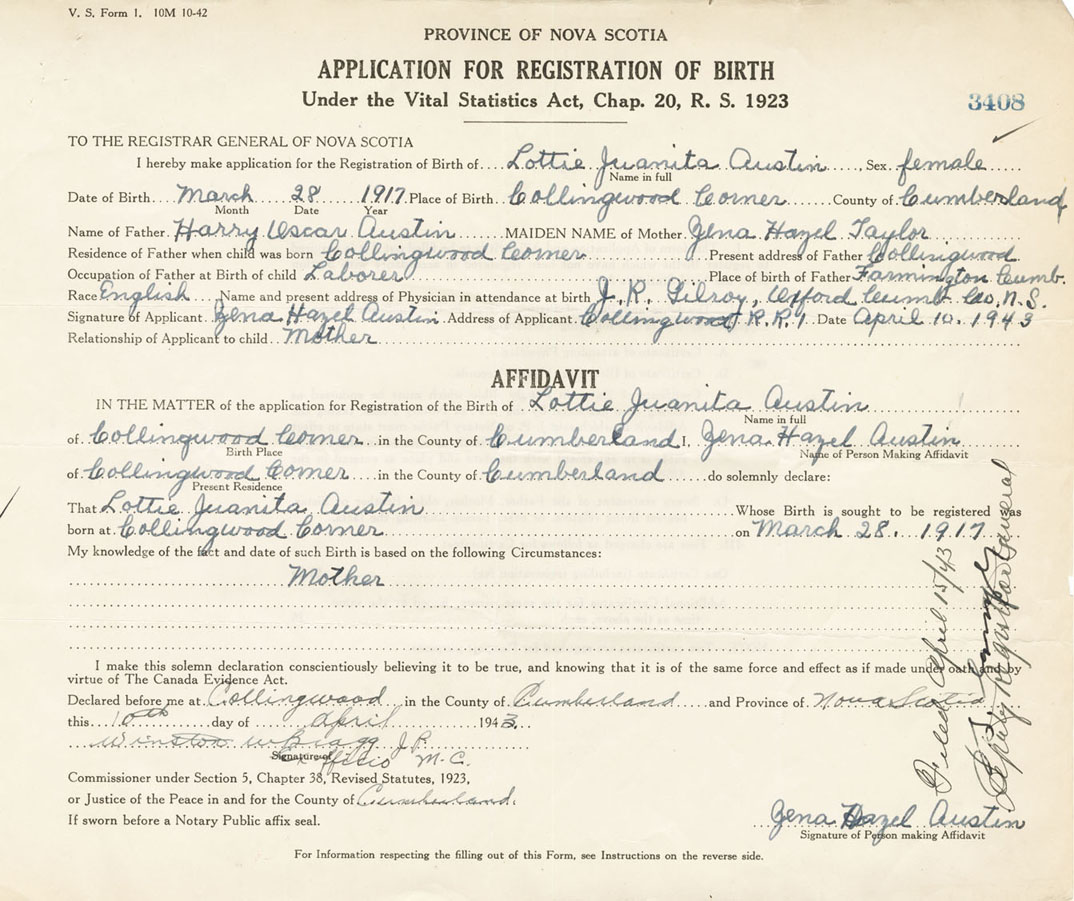 V. S. Form 1. 10M 10-42
PROVINCE OF NOVA SCOTIA
APPLICATION FOR REGISTRATION OF BIRTH
Under the Vital Statistics Act, Chap. 20, R. S. 1923
3408
TO THE REGISTRAR GENERAL OF NOVA SCOTIA
I hereby make application for the Registration of Birth of Lottie Juanita Austin, Sex female
Name in full
Date of Birth March 28 1917 Place of Birth Collingwood Corner County of Cumberland
Month Date Year
Name of Father Harry Oscar Austin MAIDEN NAME of Mother Zena Hazel Taylor
Residence of Father when child was born Collingwood Corner Present address of Father Collingwood
Occupation of Father at Birth of child Laborer Place of birth of Father Farmington Cumb.
Race English Name and present address of Physician in attendance at birth J. R. Gilroy, Oxford Cumb. Co, N.S.
Signature of Applicant Zena Hazel Austin Address of Applicant Collingwood R.R.1 Date April 10. 1943
Relationship of Applicant to child Mother
AFFIDAVIT
IN THE MATTER of the application for Registration of the Birth of Lottie Juanita Austin
Name in full
of Collingwood Corner in the County of Cumberland I, Zena Hazel Austin
Birth Place Name of Person Making Affidavit
of Collingwood Corner in the County of Cumberland do solemnly declare:
Present Residence
That Lottie Juanita Austin Whose Birth is sought to be registered was
born at Collingwood Corner on March 28. 1917
My knowledge of the fact and date of such Birth is based on the following Circumstances:
Mother
I make this solemn declaration conscientiously believing it to be true, and knowing that it is of the same force and effect as if made under oath and by
virtue of The Canada Evidence Act.
Declared before me at Collingwood in the County of Cumberland and Province of Nova Scotia
this 10th day of April 1943.
Winston W Bragg J.P.
Signature of Ex officio M.C.
Commissioner under Section 5, Chapter 38, Revised Statutes, 1923,
or Justice of the Peace in and for the County of Cumberland.
If sworn before a Notary Public affix seal.
Zena Hazel Austin
Signature of Person making Affidavit
For Information respecting the filling out of this Form, see Instructions on the reverse side.
Filed April 15/43
Deputy Registrar General